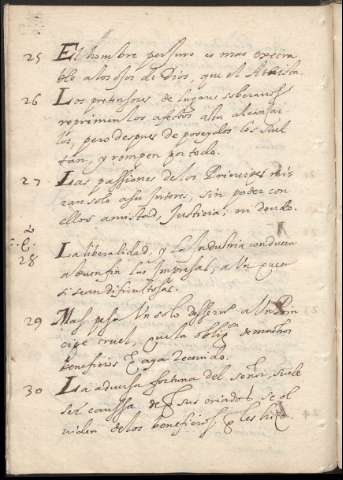 25 El hombre perjuro es mas execra
ble a los ojos de Dios, que el Atheista.
26 Los pretensores de lugares soberanos
reprimen los afectos asta alcansar
los, pero despues de poseydos los suel
tan, y rompen por todo.
27 Las passiones de los Principes miran
solo a su interes, sin poder con
ellos amistad, Justicia, ni deudo.
28 La liberalidad, y la Industria conducen
a buen fin las Impresas, a Un que
sean dificultosas.
29 Mas pesa Un solo disgusto a Un Prin
cipe cruel, que la oblig.on de muchos
beneficios q aga recevido.
30 La adversa fortuna del señor, suele
ser caussa, de q sus criados, se ol
viden de los beneficios q les hi